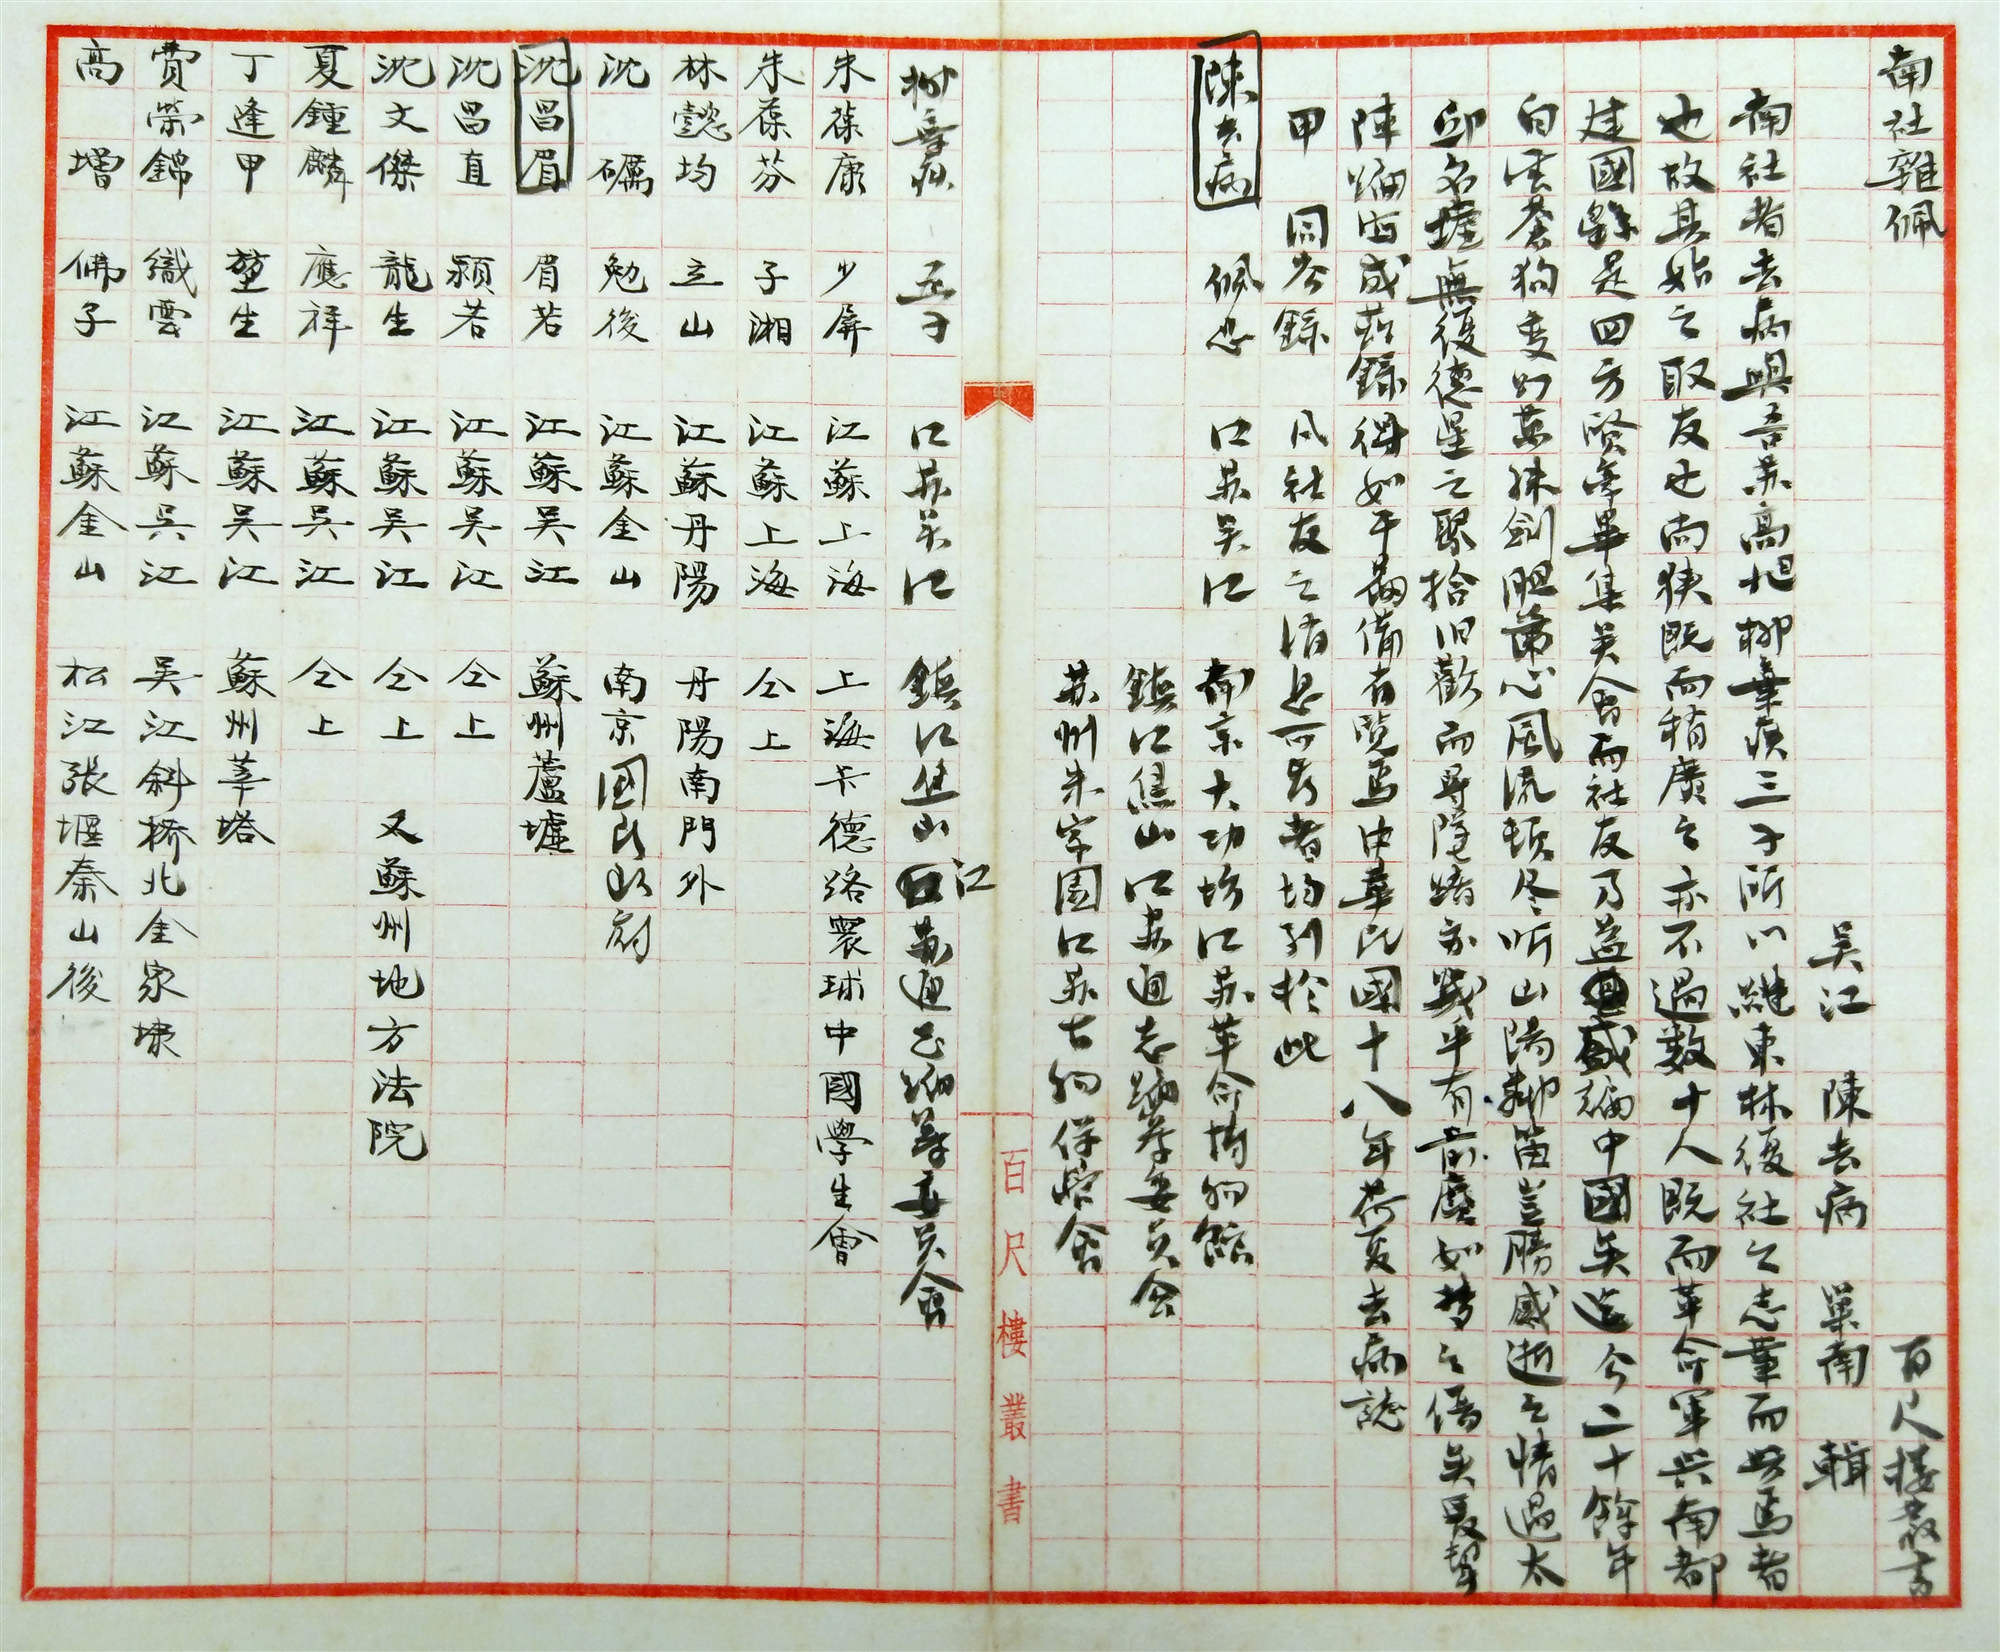 南社雜佩 百尺樓叢書
吳江 陳去病 巢南 輯
南社者去病與吾苏高旭柳棄疾三子所以繼東林復社之志業而興焉者
也故其始之取友也尚狹既而稍廣之亦不過數十人既而革命軍興南都
建國繇是四方賢豪畢集吴會而社友乃益盛徧中國矣迄今二十餘年
白雲蒼狗变幻萬殊劍胆簫心風流頓尽听山陽鄰笛豈勝感逝之情過太
邱名墟無復德星之聚拾旧歡而尋隆踏亦或乎有前塵如梦之僞矣爰暫
陳編次成茲錄得如干晶備省覽焉中華民國十八年荷夏去病誌
甲 同岑錄 凡社友之湝息可考者均列於此
陳去病 佩忍 江苏吴江 南京大功坊江苏革命博物館
鎮江焦山江苏通志編纂委員会
苏州朱家園江苏古物保管會
柳棄疾 亚子 江苏吴江 鎮江焦山江苏通志編纂委員會
朱葆康 少屏 江蘇上海 上海卡德路寰球中國學生會
朱葆芬 子湘 江蘇上海 仝上
林懿均 立山 江蘇丹陽 丹陽南門外
沈礪 勉後 江蘇金山 南京國民政府
沈昌眉 眉若 江蘇吳江 蘇州蘆墟
沈昌直 潁若 江蘇吳江 仝上
沈文傑 龍生 江蘇吳江 仝上 又蘇州地方法院
夏鍾麟 應祥 江蘇吳江 仝上
丁逢甲 堃生 江蘇吳江 蘇州莘塔
費榮錦 織雲 江蘇吳江 吳江斜橋北金家埭
高增 佛子 江蘇金山 松江張堰秦山後
百尺樓叢書